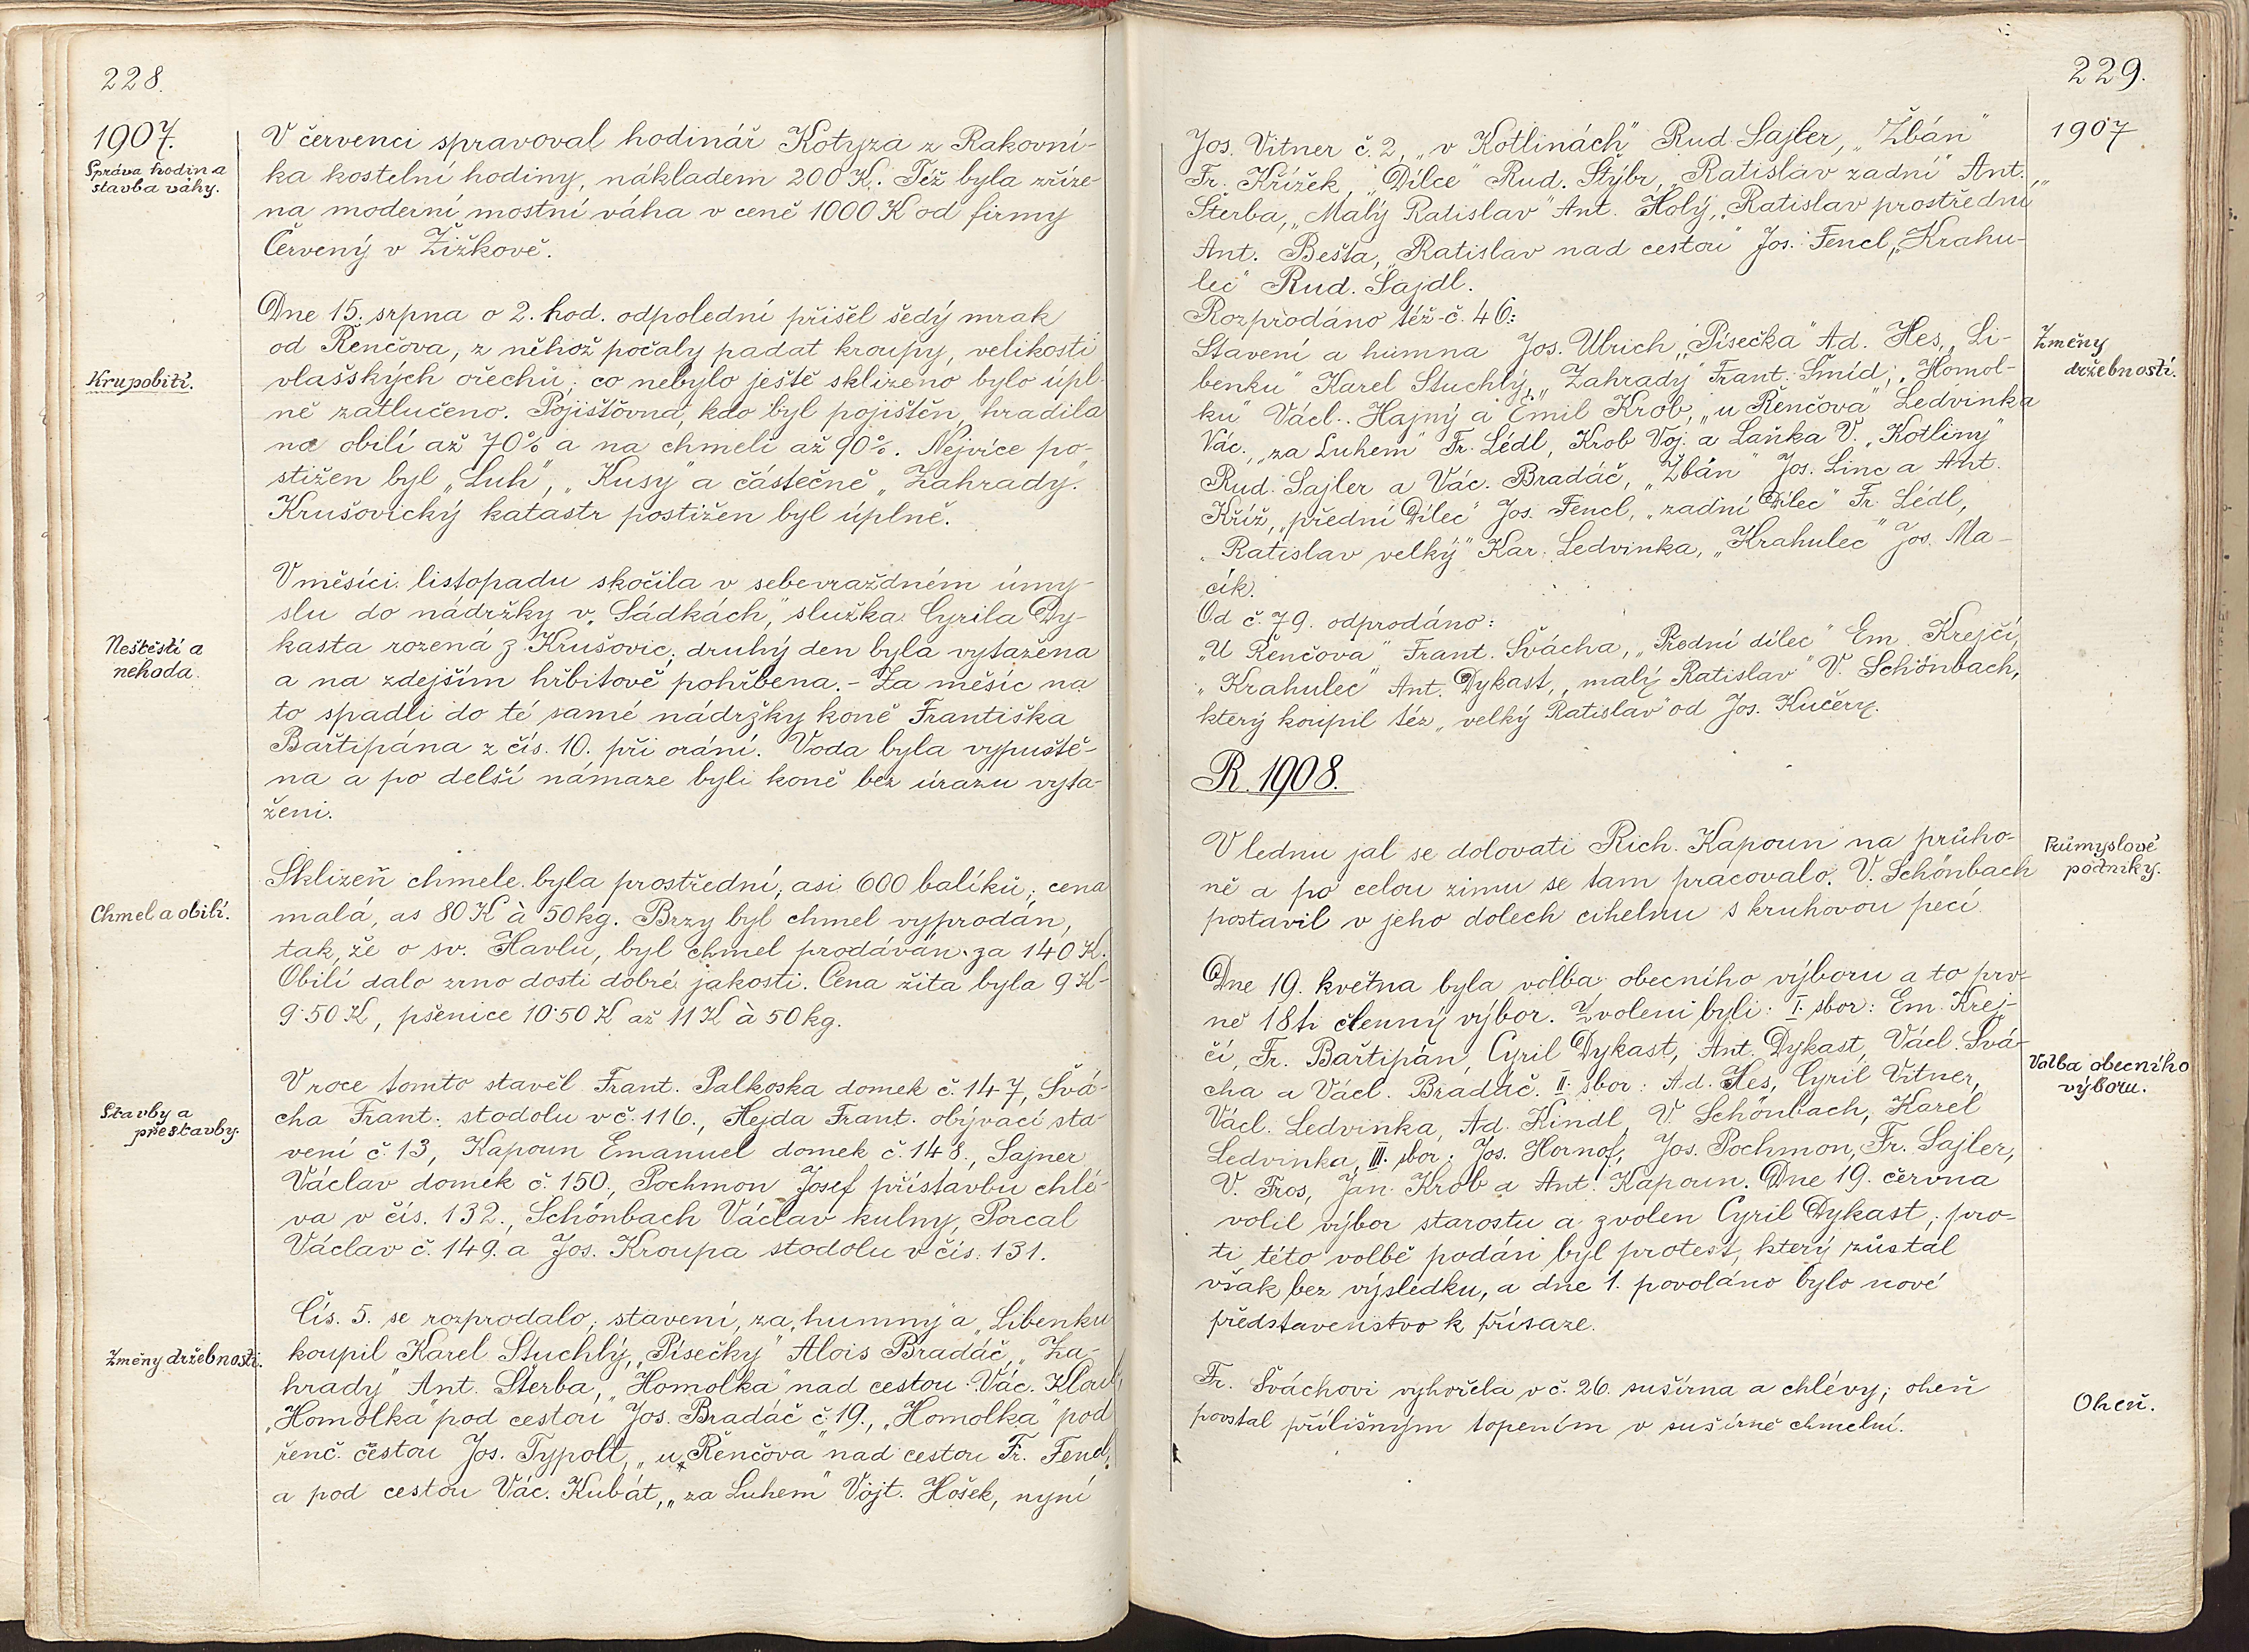 228.
1907.
Správa hodin a
stavba váhy.
V červenci spravoval hodinář Kotyza z Rakovní-
ka kostelní hodiny, nákladem 200 K. Též byla zříze-
na moderní mostní váha v ceně 1000 K od firmy
Červený v Žižkově.
Krupobití.
Dne 15. srpna o 2. hod. odpolední přišel šedý mrak
od Řenčova, z něhož počaly padat kroupy, velikosti
vlašských ořechů; co nebylo ještě sklizeno bylo úpl-
ně zatlučeno. Pojišťovna, kdo byl pojištěn, hradila
na obilí až 70% a na chmeli až 90%. Nejvíce po-
stižen byl „Luh", „Kusy" a částečně „Zahrady".
Krušovický katastr postižen byl úplně.
Neštěstí a
nehoda.
V měsíci listopadu skočila v sebevraždném úmy-
slu do nádržky v „Sádkách," služka Cyrila Dy-
kasta rozená z Krušovic; druhý den byla vytažena
a na zdejším hřbitově pohřbena. - Za měsíc na
to spadli do té samé nádržky koně Františka
Bařtipána z čís. 10. při orání. Voda byla vypuště-
na a po delší námaze byli koně bez úrazu vyta-
ženi.
Chmel a obilí.
Sklizeň chmele byla prostřední; asi 600 balíků; cena
malá, as 80 K à 50 kg. Brzy byl chmel vyprodán,
tak, že o sv. Havlu, byl chmel prodáván za 140 K.
Obilí dalo zrno dosti dobré jakosti. Cena žita byla 9 K-
9·50 K, pšenice 10·50 K až 11 K à 50 kg.
Stavby a
přestavby.
V roce tomto stavěl Frant. Palkoska domek č. 147, Švá-
cha Frant. stodolu v č. 116., Hejda Frant. obývací sta-
vení č. 13, Kapoun Emanuel domek č. 148., Sajner
Václav domek č. 150., Pochmon Josef přístavbu chlé-
va v čís. 132., Schönbach Václav kulny, Porcal
Václav č. 149. a Jos. Kroupa stodolu v čís. 131.
Změny držebnosti.
Čís. 5. se rozprodalo; stavení, „za humny" a „Libenku
koupil Karel Stuchlý, „Písečky" Alois Bradáč, „Za-
hrady" Ant. Štěrba, „Homolka" nad cestou Vác.
„Homolka" pod cestou Jos. Bradáč č. 19., „Homolka" pod
řenč. cestou Jos. Typolt, „u Řenčova" nad cestou Fr. Fencl,
a pod cestou Vác. Kubát, „za Luhem" Vojt. Hošek, nyní
229.
1907
Jos. Vitner č. 2, „v Kotlinách" Rud. Sajler, „Žbán"
Fr. Křížek, „Dílce" Rud. Štýbr, „Ratislav zadní" Ant.
Štěrba, „Malý Ratislav" Ant. Holý, „Ratislav prostřední"
Ant. Bešta, „Ratislav nad cestou" Jos. Fencl, „Krahu-
lec" Rud. Šajdl.
Rozprodáno též č. 46:
Změny
držebnosti.
Stavení a humna Jos. Ulrich, „Písečka" Ad. Hes, „Li-
benku" Karel Stuchlý, „Zahrady" Frant. Šmíd, „Homol-
ku" Václ. Hajný a Emil Krob, „u Řenčova" Ledvinka
Vác., „za Luhem" Fr. Lédl, Krob Voj. a Laňka V. „Kotliny"
Rud. Sajler a Vác. Bradáč, „Žbán" Jos. Linc a Ant.
Kříž, „přední Dílec" Jos. Fencl, „zadní Dílec" Fr. Lédl,
„Ratislav velký" Kar. Ledvinka, „Krahulec" Jos. Ma-
cík.
Od č. 79. odprodáno:
„U Řenčova" Frant. Švácha, „Přední dílec" Em. Krejčí,
„Krahulec" Ant. Dykast, „malý Ratislav" V. Schönbach,
který koupil též „velký Ratislav" od Jos. Kučery.
R. 1908.
Průmyslové
podniky.
V lednu jal se dolovati Rich. Kapoun na průho-
ně a po celou zimu se tam pracovalo. V. Schönbach
postavil v jeho dolech cihelnu s kruhovou pecí.
Volba obecního
výboru.
Dne 19. května byla volba obecního výboru a to prv-
ně 18ti členný výbor. Zvoleni byli: I. sbor: Em. Krej-
čí, Fr. Bařtipán, Cyril Dykast, Ant. Dykast, Václ. Švá-
cha a Václ. Bradáč. II. sbor: Ad. Hes, Cyril Vitner,
Václ. Ledvinka, Ad. Kindl, V. Schönbach, Karel
Ledvinka, III. sbor: Jos. Hornof, Jos. Pochmon, Fr. Sajler,
V. Fros, Jan Krob a Ant. Kapoun. Dne 19. června
volil výbor starostu a zvolen Cyril Dykast; pro-
ti této volbě podán byl protest, který zůstal
však bez výsledku, a dne 1. povoláno bylo nové
představenstvo k přísaze.
Oheň.
Fr. Šváchovi vyhořela v č. 26. sušírna a chlévy; oheň
povstal přílišným topením v sušírně chmelní.